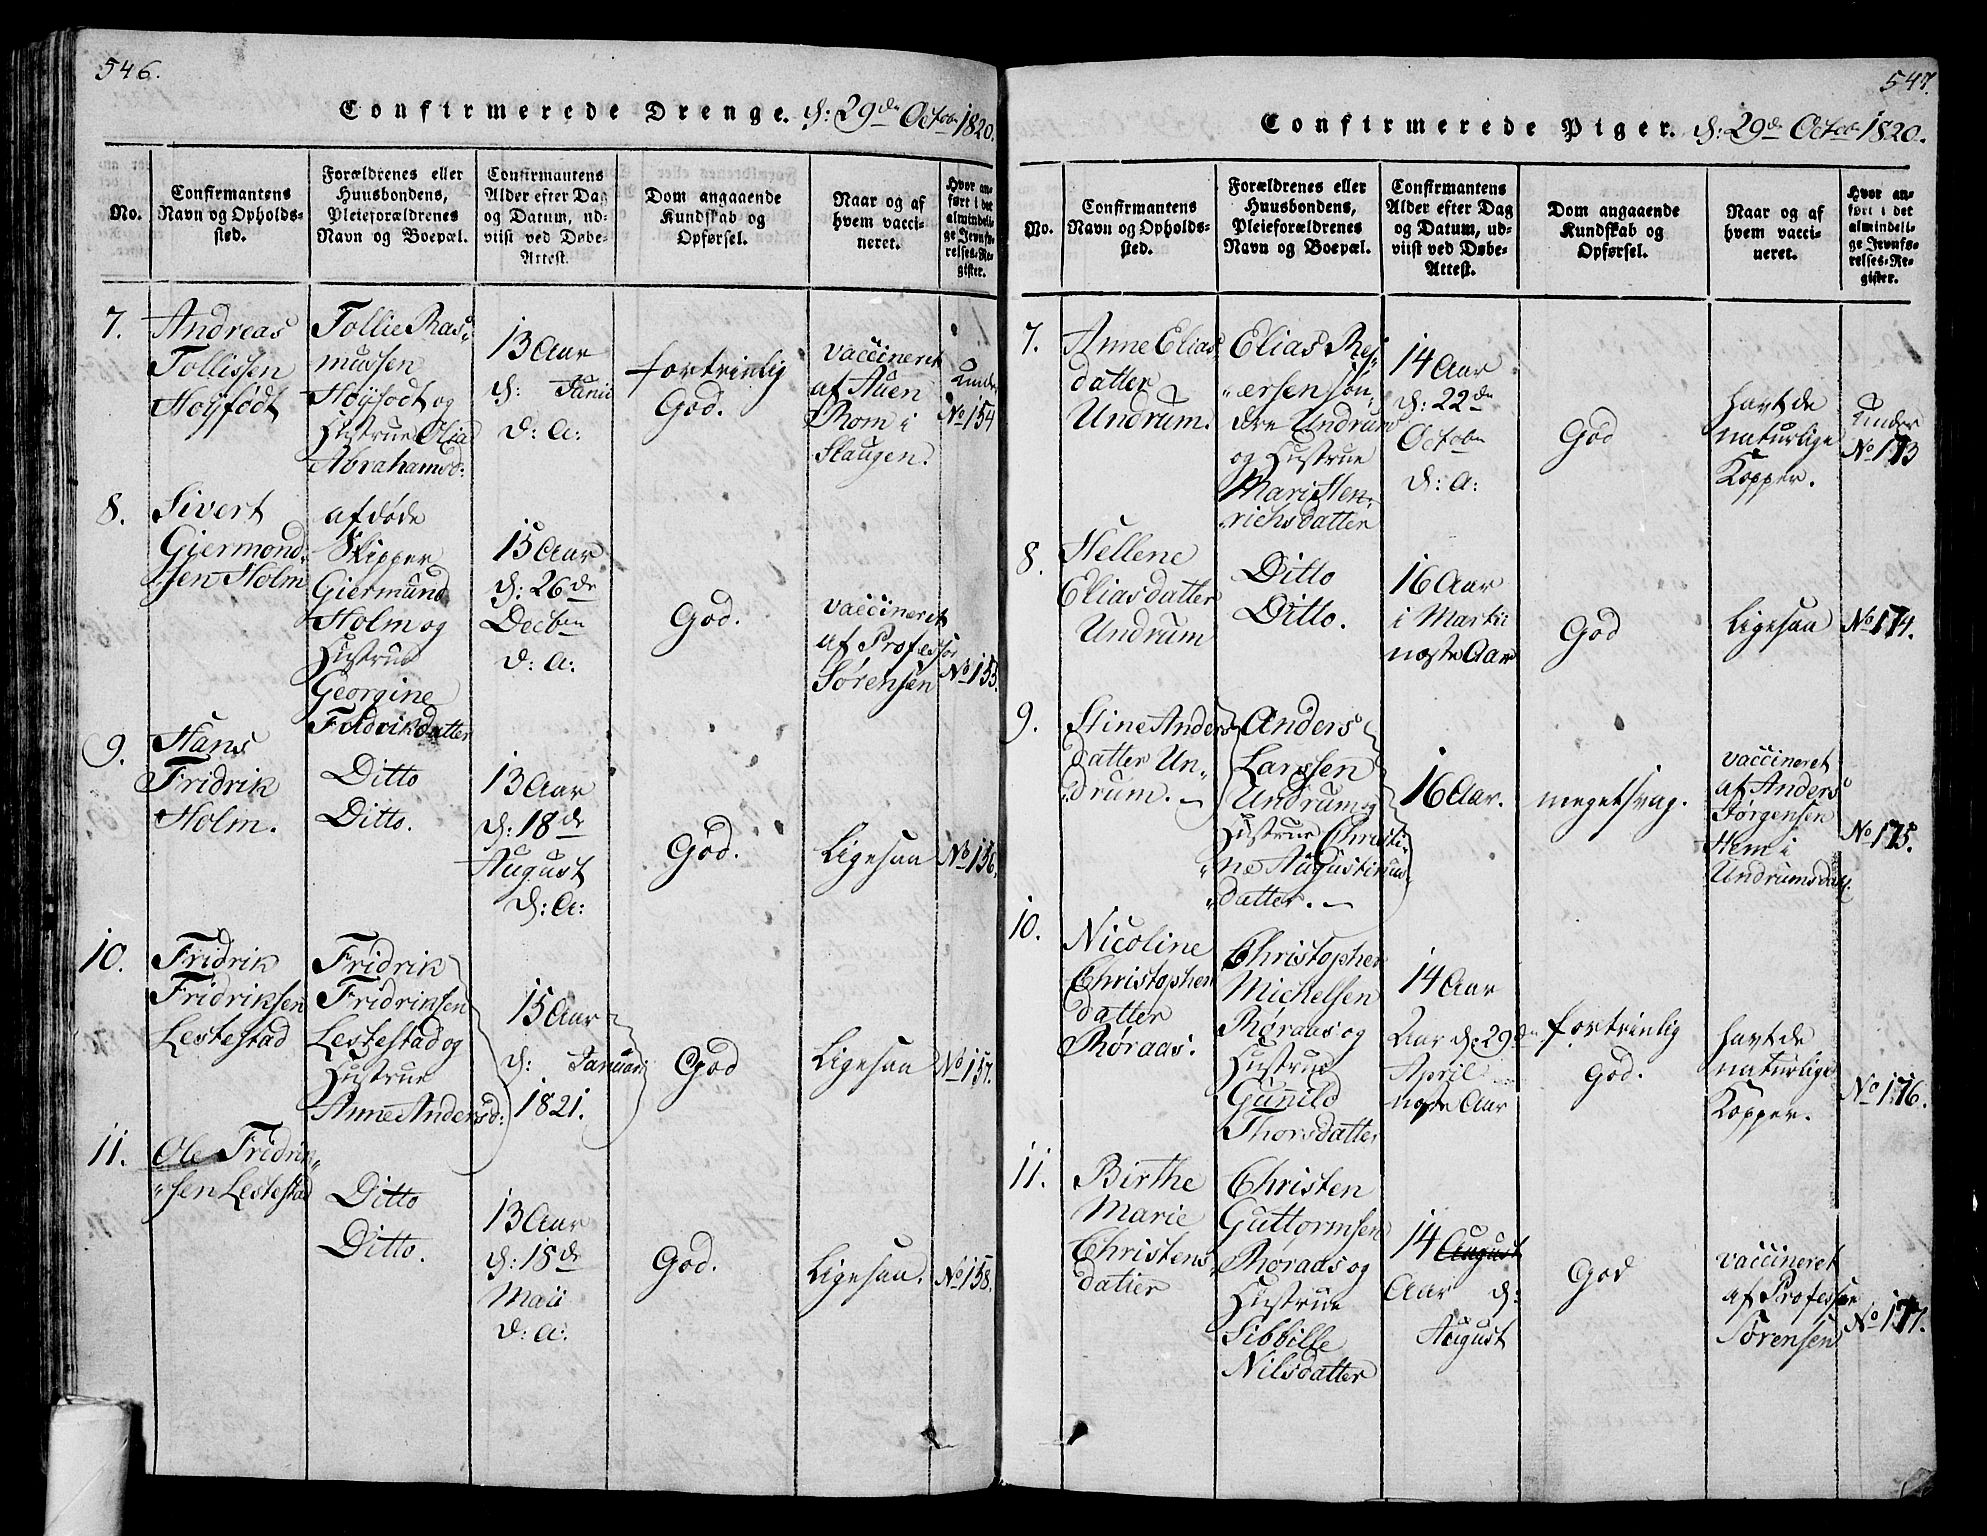 546.
Confirmerede Drenge. d: 29de Octobr 1820.
No.
Confirmantens
Navn og Opholds-
sted.
Forældrenes eller
Huusbondens,
Pleieforældrenes
Navn og Boepæl.
Confirmantens
Alder efter Dag
og Datum, ud-
viist ved Døbe-
Attest.
Dom angaaende
Kundskab og
Opførsel.
Naar og af
hvem vacci-
neret.
Hvor an-
ført i det
almindeli-
ge Jevnfø-
relses-Re-
gister.
7.
Andreas
Tollissen
Høyjødt
Tollie Ras-
mussen
Høyjødt og
Hustrue Olia
Abrahamsd:
13 Aar
d: Junii
d: A:
fortrinlig
God.
vaccineret
af Auen
Rom i
Slaugen.
under
No 154
8.
Sivert
Giermond-
sen Holm
afdøde
Skipper
Giermund
Holm og
Hustrue
Georgine
Fridrikdatter
15 Aar
d: 26de
Decbr
d: A:
God.
vaccineret
af Professor
Sørensen
No 155.
9.
Hans
Fridrik
Holm.
Ditto
Ditto.
13 Aar
d: 18de
August
d: A:
God.
Ligesaa
No 156.
10.
Fridrik
Fridriksen
Lestestad
Fridrik
Fridriksen
Lestestad og
Hustrue
Anne Andersd:
15 Aar
d: Januari
1821.
God
Ligesaa
No 157.
11.
Ole Fridrik-
sen Lestestad
Ditto
Ditto.
13 Aar
d: 18de
Maii
d: A:
God.
Ligesaa.
No 158.
547.
Confirmerede Piger. d: 29de Octobr 1820.
No.
Confirmantens
Navn og Opholds-
sted.
Forældrenes eller
Huusbondens,
Pleieforældrenes
Navn og Boepæl.
Confirmantens
Alder efter Dag
og Datum, ud-
viist ved Døbe-
Attest.
Dom angaaende
Kundskab og
Opførsel.
Naar og af
hvem vacci-
neret.
Hvor an-
ført i det
almindeli-
ge Jevnfø-
relses-Re-
gister.
7.
Anne Elias
datter
Undrum.
Elias
Søn-
dre Undrum
og Hustrue
Mari Hen-
richsdatter
14 Aar
d: 22de
Octobr
d: A:
God
havt de
naturlige
Kopper.
under
No 173
8.
Hellene
Eliasdatter
Undrum
Ditto
Ditto.
16 Aar
i Martii
næste Aar
God
Ligesaa
No 174.
9.
Stine Anders
datter Un-
drum.
Anders
Larssen
Undrum og
Hustrue Christi-
ne Augustinus-
datter.
16 Aar.
meget svag.
vaccineret
af Anders
Jørgensen
Hem i
Undrumsdall.
No 175.
10.
Nicoline
Christopher
datter
Røraas.
Christopher
Michelsen
Røraas og
Hustrue
Gunild
Thorsdatter
14 Aar
Aar d: 29de
April
næste Aar
fortrinlig
God.
havt de
naturlige
Kopper.
No 176.
11.
Birthe
Marie
Christens-
datter
Christen
Guttormsen
Røraas og
Hustrue
Sibbille
Nilsdatter
14 August
Aar d:
August
God
vaccineret
af Professor
Sørensen
No 177.